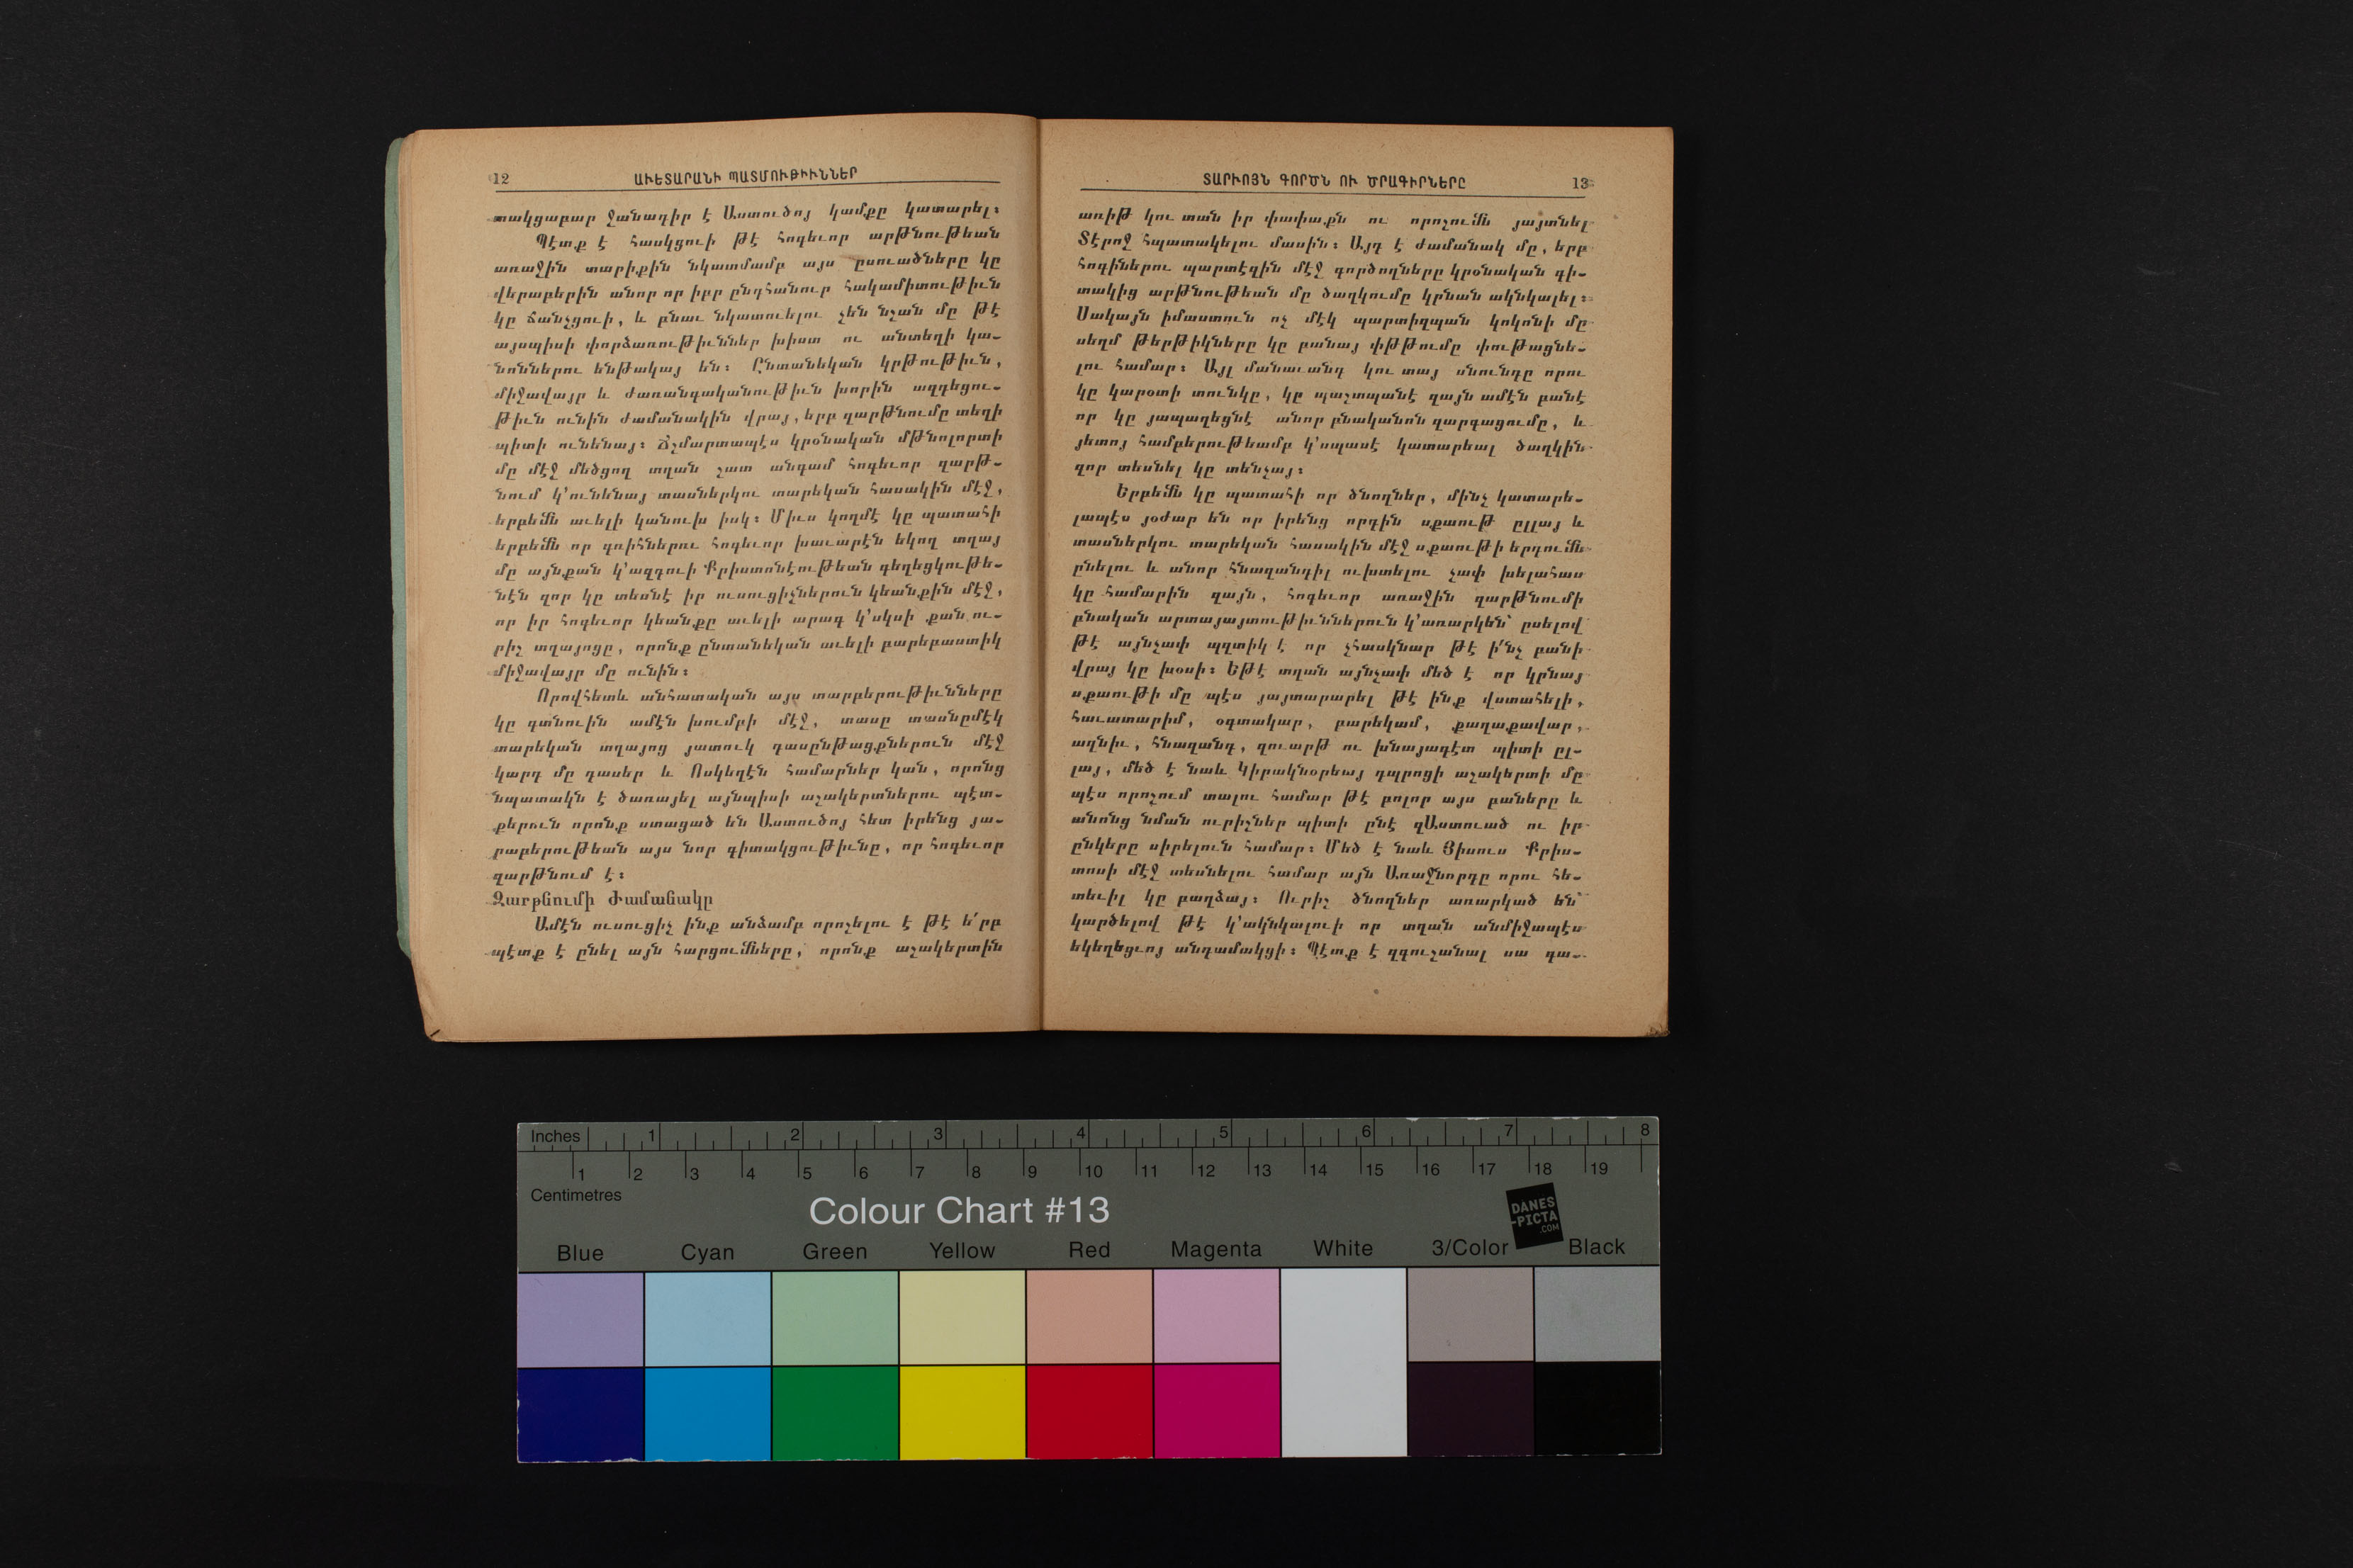 12 ԱՒԵՏԱՐԱՆԻ ՊԱՏՄՈՒԹԻՒՆՆԵՐ
տակցաբար ջանադիր է Աստուծոյ կամքը կատարել։
Պէտք է հասկցուի թէ հոգեւոր արթնութեան
առաջին տարիքին նկատմամբ այս ըսուածները կը
վերաբերին անոր որ իբր ընդհանուր հակամիտութիւն
կը ճանչցուի, և բնաւ նկատուելու չեն նշան մը թէ
այսպիսի փորձառութիւններ խիստ ու անտեղի կա-
նոններու ենթակայ են։ Ընտանեկան կրթութիւն,
միջավայր և ժառանգականութիւն խորին ազդեցու-
թիւն ունին ժամանակին վրայ, երբ զարթնումը տեղի
պիտի ունենայ։ Ճշմարտապէս կրօնական մթնոլորտի
մը մէջ մեծցող տղան շատ անգամ հոգեւոր զարթ-
նում կ՚ունենայ տասներկու տարեկան հասակին մէջ,
երբեմն աւելի կանուխ իսկ։ Միւս կողմէ կը պատահի
երբեմն որ գռիհներու հոգեւոր խաւարէն եկող տղայ
մը այնքան կ՚ազդուի Քրիստոնէութեան գեղեցկութե-
նէն զոր կը տեսնէ իր ուսուցիչներուն կեանքին մէջ,
որ իր հոգեւոր կեանքը աւելի արագ կ՚սկսի քան ու-
րիշ տղայոցը, որոնք ընտանեկան աւելի բարեբաստիկ
միջավայր մը ունին։
Որովհետև անհատական այս տարբերութիւնները
կը գտնուին ամէն խումբի մէջ, տասը տասնըմէկ
տարեկան տղայոց յատուկ դասընթացքներուն մէջ
կարդ մը դասեր և Ոսկեղէն համարներ կան, որոնց
նպատակն է ծառայել այնպիսի աշակերտներու պէտ-
քերուն որոնք ստացած են Աստուծոյ հետ իրենց յա-
րաբերութեան այս նոր գիտակցութիւնը, որ հոգեւոր
զարթնում է։
Զարթնումի Ժամանակը
Ամէն ուսուցիչ ինք անձամբ որոշելու է թէ ե՛րբ
պէտք է ընել այն հարցումները, որոնք աշակերտին
ՏԱՐՒՈՅՆ ԳՈՐԾՆ ՈՒ ԾՐԱԳԻՐՆԵՐԸ 13
առիթ կու տան իր փափաքն ու որոշումն յայտնել
Տէրոջ հպատակելու մասին։ Այդ է ժամանակ մը, երբ
հոգիներու պարտէզին մէջ գործողները կրօնական գի-
տակից արթնութեան մը ծաղկումը կրնան ակնկալել։
Սակայն իմաստուն ոչ մէկ պարտիզպան կոկոնի մը
սեղմ թերթիկները կը բանայ փթթումը փութացնե-
լու համար։ Այլ մանաւանդ կու տայ սնունդը որու
կը կարօտի տունկը, կը պաշտպանէ զայն ամէն բանէ
որ կը յապաղեցնէ անոր բնականոն զարգացումը, և
յետոյ համբերութեամբ կ՚սպասէ կատարեալ ծաղկին
զոր տեսնել կը տենչայ։
Երբեմն կը պատահի որ ծնողներ, մինչ կատարե-
լապէս յօժար են որ իրենց որդին սքաութ ըլլայ և
տասներկու տարեկան հասակին մէջ սքաութի երդումն
ընելու և անոր հնազանդիլ ուխտելու չափ խելահաս
կը համարին զայն, հոգեւոր առաջին զարթնումի
բնական արտայայտութիւններուն կ՚առարկեն՝ ըսելով
թէ այնչափ պզտիկ է որ չհասկնար թէ ի՛նչ բանի
վրայ կը խօսի։ Եթէ տղան այնչափ մեծ է որ կրնայ
սքաութի մը պէս յայտարարել թէ ինք վստահելի,
հաւատարիմ, օգտակար, բարեկամ, քաղաքավար,
ազնիւ, հնազանդ, զուարթ ու խնայադէտ պիտի ըլ-
լայ, մեծ է նաև Կիրակնօրեայ դպրոցի աշակերտի մը
պէս որոշում տալու համար թէ բոլոր այս բաները և
անոնց նման ուրիշներ պիտի ընէ զԱստուած ու իր
ընկերը սիրելուն համար։ Մեծ է նաև Յիսուս Քրիս-
տոսի մէջ տեսնելու համար այն Առաջնորդը որու հե-
տեւիլ կը բաղձայ։ Ուրիշ ծնողներ առարկած են՝
կարծելով թէ կ՚ակնկալուի որ տղան անմիջապէս
եկեղեցւոյ անդամակցի։ Պէտք է զգուշանալ սա գա-
Inches 1 2 3 4 5 6 7 8
1 2 3 4 5 6 7 8 9 10 11 12 13 14 15 16 17 18 19
Centimetres
Colour Chart #13
DANES
-PICTA
.COM
Blue Cyan Green Yellow Red Magenta White 3/Color Black